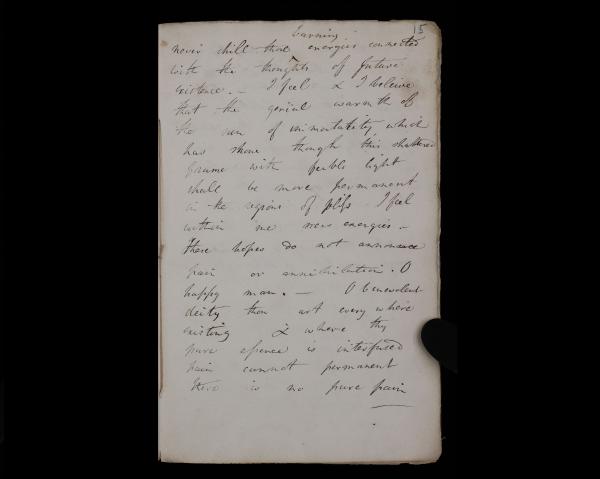 15
burning
never chill that energies connected
with the thoughts of future
existence. – I feel & I beleive
that the genial warmth of
the sun of immortality which
has shone through this shattered
frame with feeble light
shall be more permanent
in the regions of bliss I feel
within me new energies –
these hopes do not announce
pain or annihilation. O
happy man. – O benevolent
deity thou art every where
existing & where thy
pure essence is interfused
pain cannot permanent
there is no pure pain